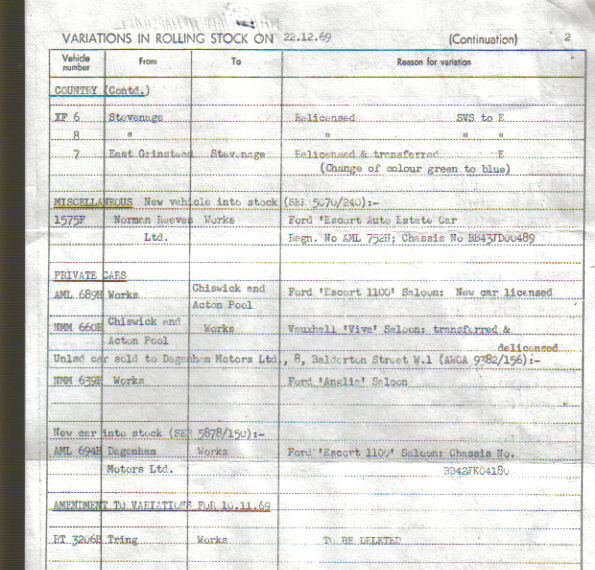 VARIATIONS IN ROLLING STOCK ON 22.12.69 (Continuation) 2
Vehicle number From To Reason for variation
COUNTRY (Contd.)
XF 6 Stevenage Relicensed SVS to E
8 " " " "
7 East Grinstead Stevenage Relicensed & transferred E
(Change of colour green to blue)
MISCELLANEOUS New vehicle into stock (SER 5070/240):-
1575F Norman Reeves Works Ford 'Escort Auto Estate Car
Ltd. Regn. No AML 752H; Chassis No BB43JD00489
PRIVATE CARS
AML 689H Works Chiswick and Acton Pool Ford 'Escort 1100' Saloon: New car licensed
NMM 660E Chiswick and Acton Pool Works Vauxhall 'Viva' Saloon: transferred &
delicensed
Unlsd car sold to Dagenham Motors Ltd., 8, Balderton Street W.1 (AWCA 9282/156):-
NMM 639E Works Ford 'Anglia' Saloon
New car into stock (SER 5878/150):-
AML 694H Dagenham Works Ford 'Escort 1100' Saloon: Chassis No.
Motors Ltd. BB42JK04180
AMENDMENT TO VARIATIONS FOR 10.11.69
RT 3206E Tring Works TO BE DELETED